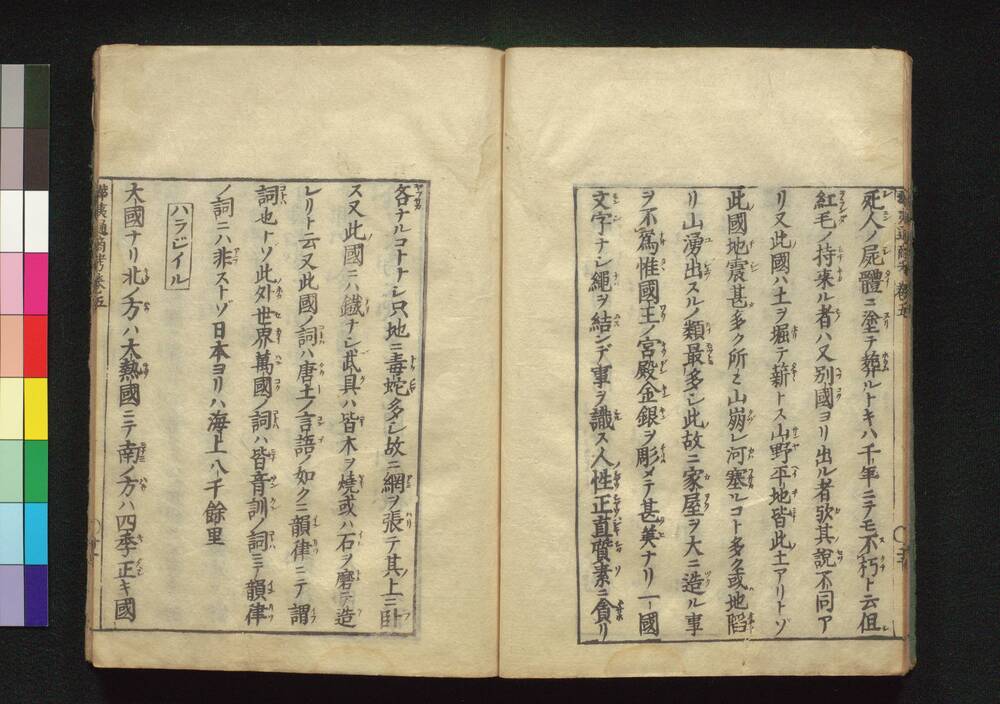 死人ノ屍體ニ塗テ葬ルトキハ千年ニテモ不朽ト云但
紅毛ノ持来ル者ハ又別國ヨリ出ル者欤其說不同ア
リ又此國ハ土ヲ堀テ薪トス山野平地皆此土アリトゾ
此國地震甚多ク所々山崩レ河塞ルコト多ク或地陷
リ山湧出スルノ類最多シ此故ニ家屋ヲ大ニ造ル事
ヲ不爲惟國王ノ宮殿金銀ヲ彫メテ甚美ナリ一國
文字ナシ繩ヲ結ンデ事ヲ識ス人性正直質素ニ貪リ
各ナルコトナシ只地ニ毒蛇多シ故ニ網ヲ張テ其上ニ臥
ス又此國ニハ鐡ナシ武具ハ皆木ヲ燒或ハ石ヲ磨テ造
レリト云又此國ノ詞ハ唐土ノ言語ノ如クニ韻律ニテ謂
詞也トゾ此外世界萬國ノ詞ハ皆音訓ノ詞ニテ韻律
ノ詞ニハ非ストゾ日本ヨリハ海上八千餘里
ハラジイル
大國ナリ北ノ方ハ大熱國ニテ南ノ方ハ四季正キ國
華夷通商考卷五